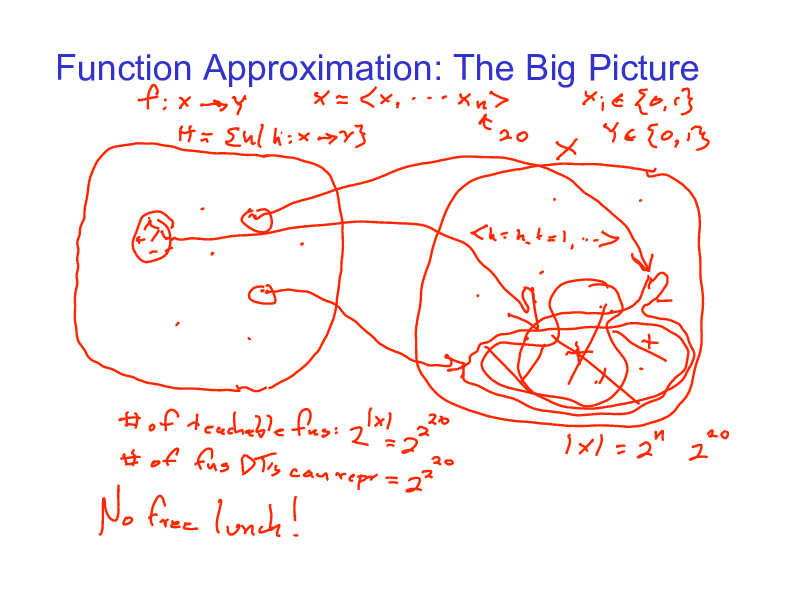 Function Approximation: The Big Picture
f: X → Y    X = <X, ··· Xn>    Xi ∈ {0,1}
H = {h| h: X → Y}    20    Y ∈ {0,1}
X
+
+
# of teachable fns: 2^|X| = 2^2^20
|X| = 2^n    2^20
# of fns DTs can repr = 2^2^20
No free lunch!